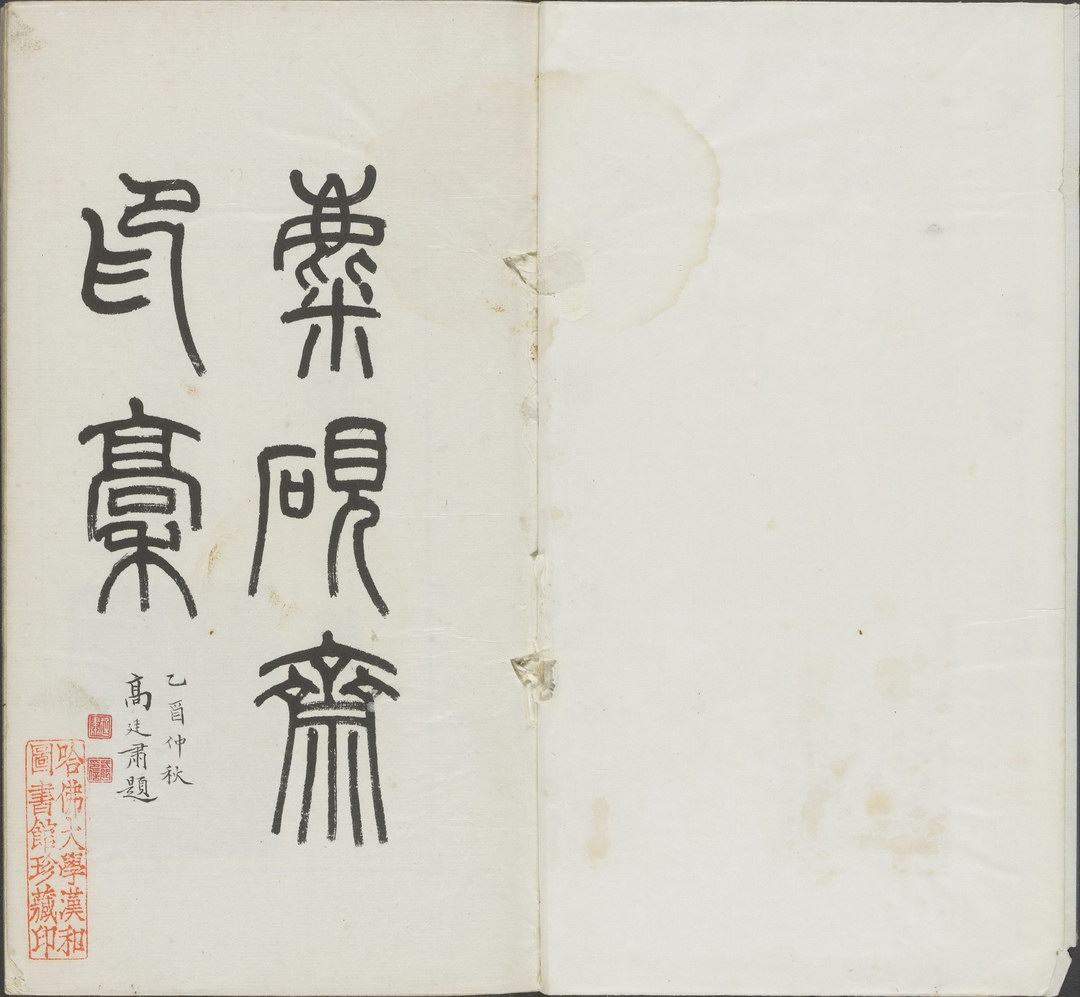 麋硯齋
印稾
乙酉仲秋
高廷肅題
哈佛大學漢和
圖書館珍藏印